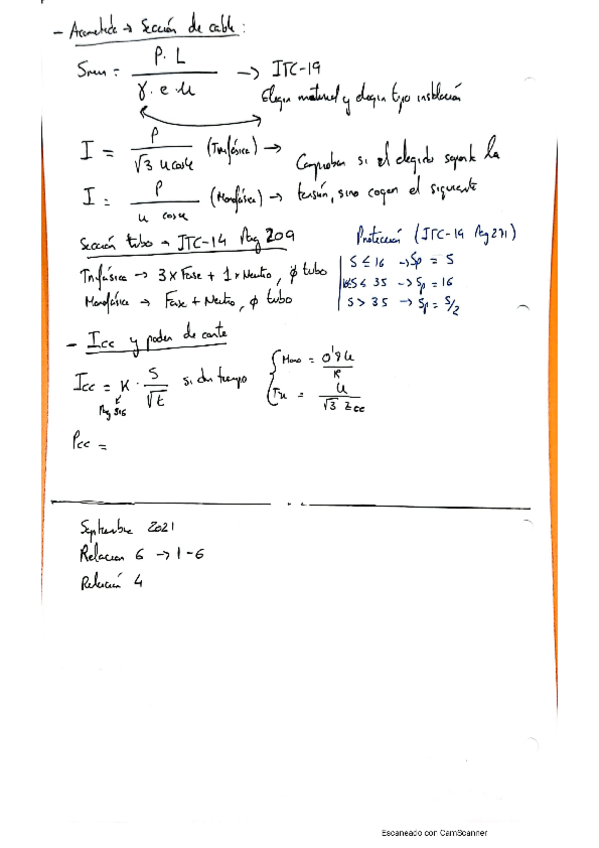 - Acometida → Sección de cable:
Smin = P·L / γ·e·u → ITC-19
Elegir material y elegir tipo instalación
I = P / √3 u cosφ (Trifásica) → Comprobar si el elegido soporta la
I = P / u cosφ (Monofásica) → tensión, sino coger el siguiente
Sección tubo → ITC-14 Pag 209
Protección (ITC-19 Pag 271)
Trifásica → 3 x Fase + 1 x Neutro, φ tubo
Monofásica → Fase + Neutro, φ tubo
S ≤ 16 → Sp = S
16≤S≤ 35 → Sp = 16
S > 35 → Sp = S/2
- Icc y poder de corte
Icc = K · S / √t si dan tiempo
Pag 316
Mono = 0'8 u / R
Tri = u / √3 Zcc
Pcc =
Septiembre 2021
Relacion 6 → 1-6
Relación 4
Escaneado con CamScanner